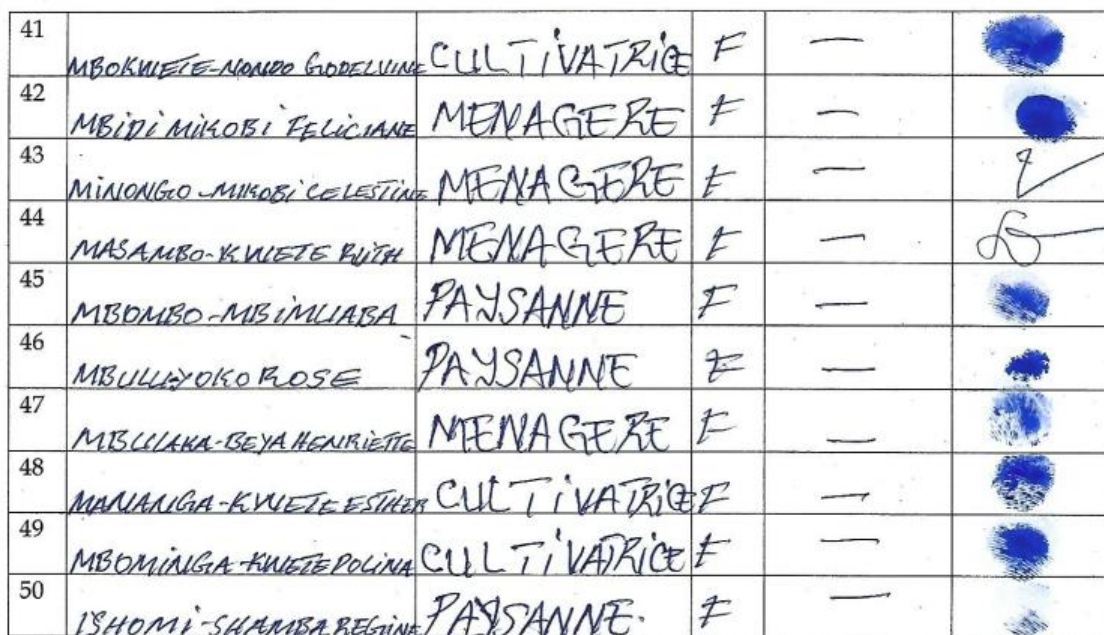 41 MBOKWETE-NONDO GODELVINE CULTIVATRICE F —
42 MBIDI MIKOBI FELICIANE MENAGERE F —
43 MINONGO-MIKOBI CELESTINE MENAGERE F —
44 MASAMBO-KWETE RUTH MENAGERE F —
45 MBOMBO-MBIMUABA PAYSANNE F —
46 MBULU-YOKO ROSE PAYSANNE F —
47 MBULAKA-BEYA HENRIETTE MENAGERE F —
48 MANANGA-KWETE ESTHER CULTIVATRICE F —
49 MBOMINGA-KWETE POLINA CULTIVATRICE F —
50 ISHOMI-SHAMBA REGINE PAYSANNE. F —